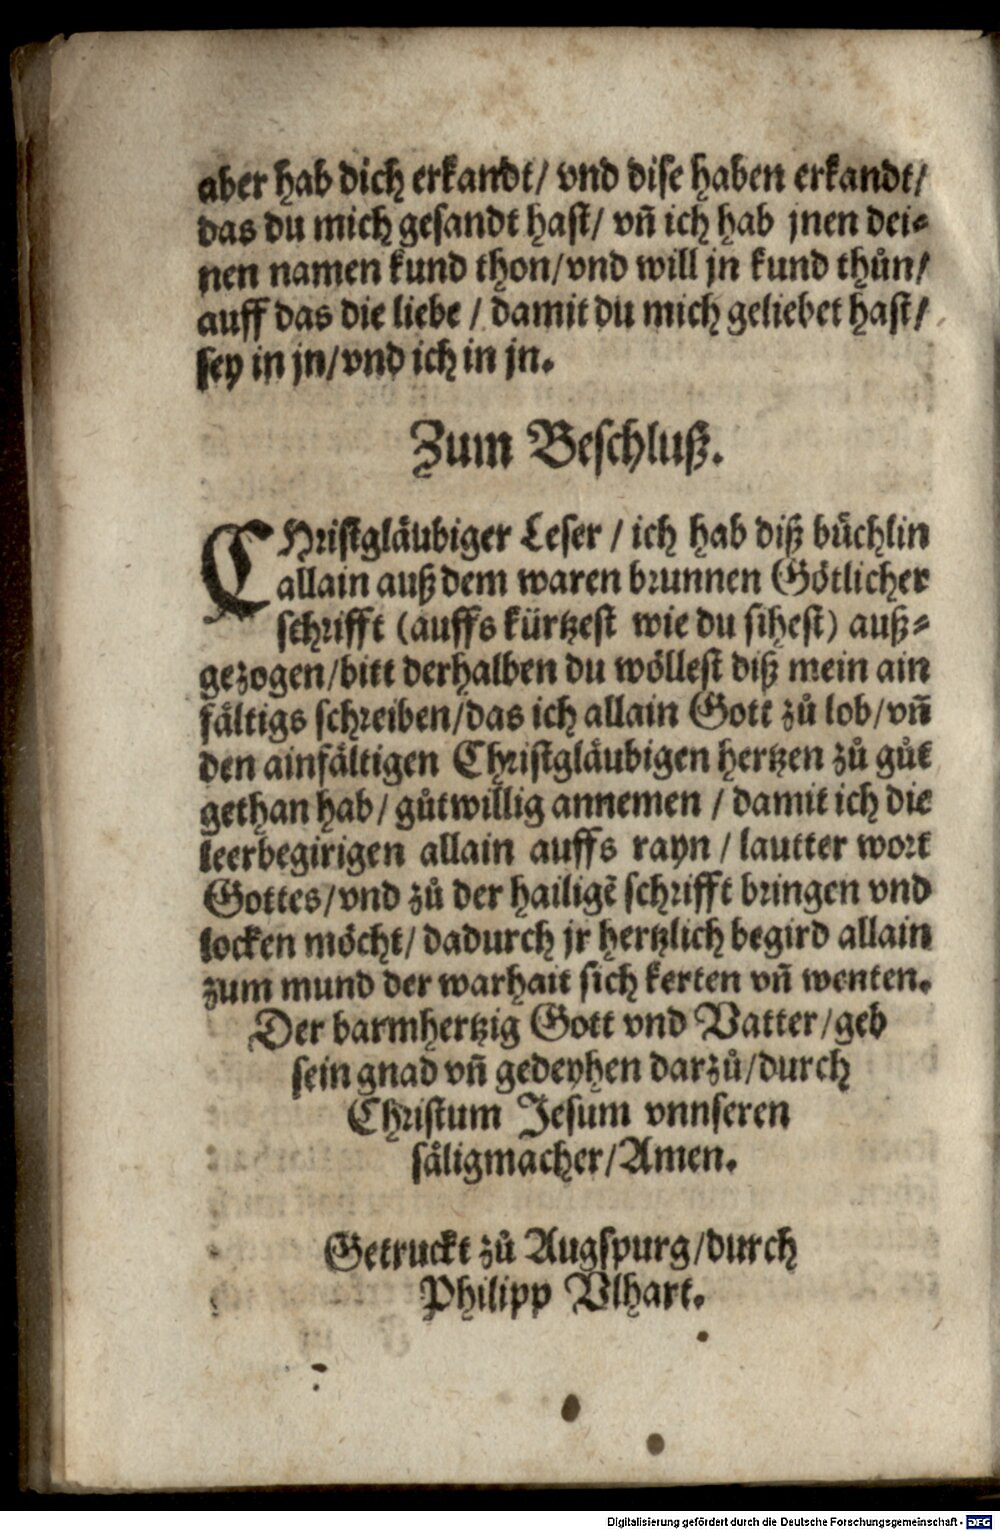 aber hab dich erkandt/ vnd dise haben erkandt/
das du mich gesandt hast/ vñ ich hab jnen dei-
nen namen kund thon/vnd will jn kund thůn/
auff das die liebe / damit du mich geliebet hast/
sey in jn/vnd ich in jn.
Zum Beschluß.
CHristgläubiger Leser / ich hab diß büchlin
allain auß dem waren brunnen Götlicher
schrifft (auffs kürtzest wie du sihest) auß-
gezogen/bitt derhalben du wöllest diß mein ain
fältigs schreiben/das ich allain Gott zů lob/vñ
den ainfältigen Christgläubigen hertzen zů gůt
gethan hab/ gůtwillig annemen / damit ich die
leerbegirigen allain auffs rayn / lautter wort
Gottes/vnd zů der hailigẽ schrifft bringen vnd
locken möcht/ dadurch jr hertzlich begird allain
zum mund der warhait sich kerten vñ wenten.
Der barmhertzig Gott vnd Vatter/geb
sein gnad vñ gedeyhen darzů/durch
Christum Jesum vnnseren
säligmacher/Amen.
Getruckt zů Augspurg/durch
Philipp Vlhart.
Digitalisierung gefördert durch die Deutsche Forschungsgemeinschaft - DFG